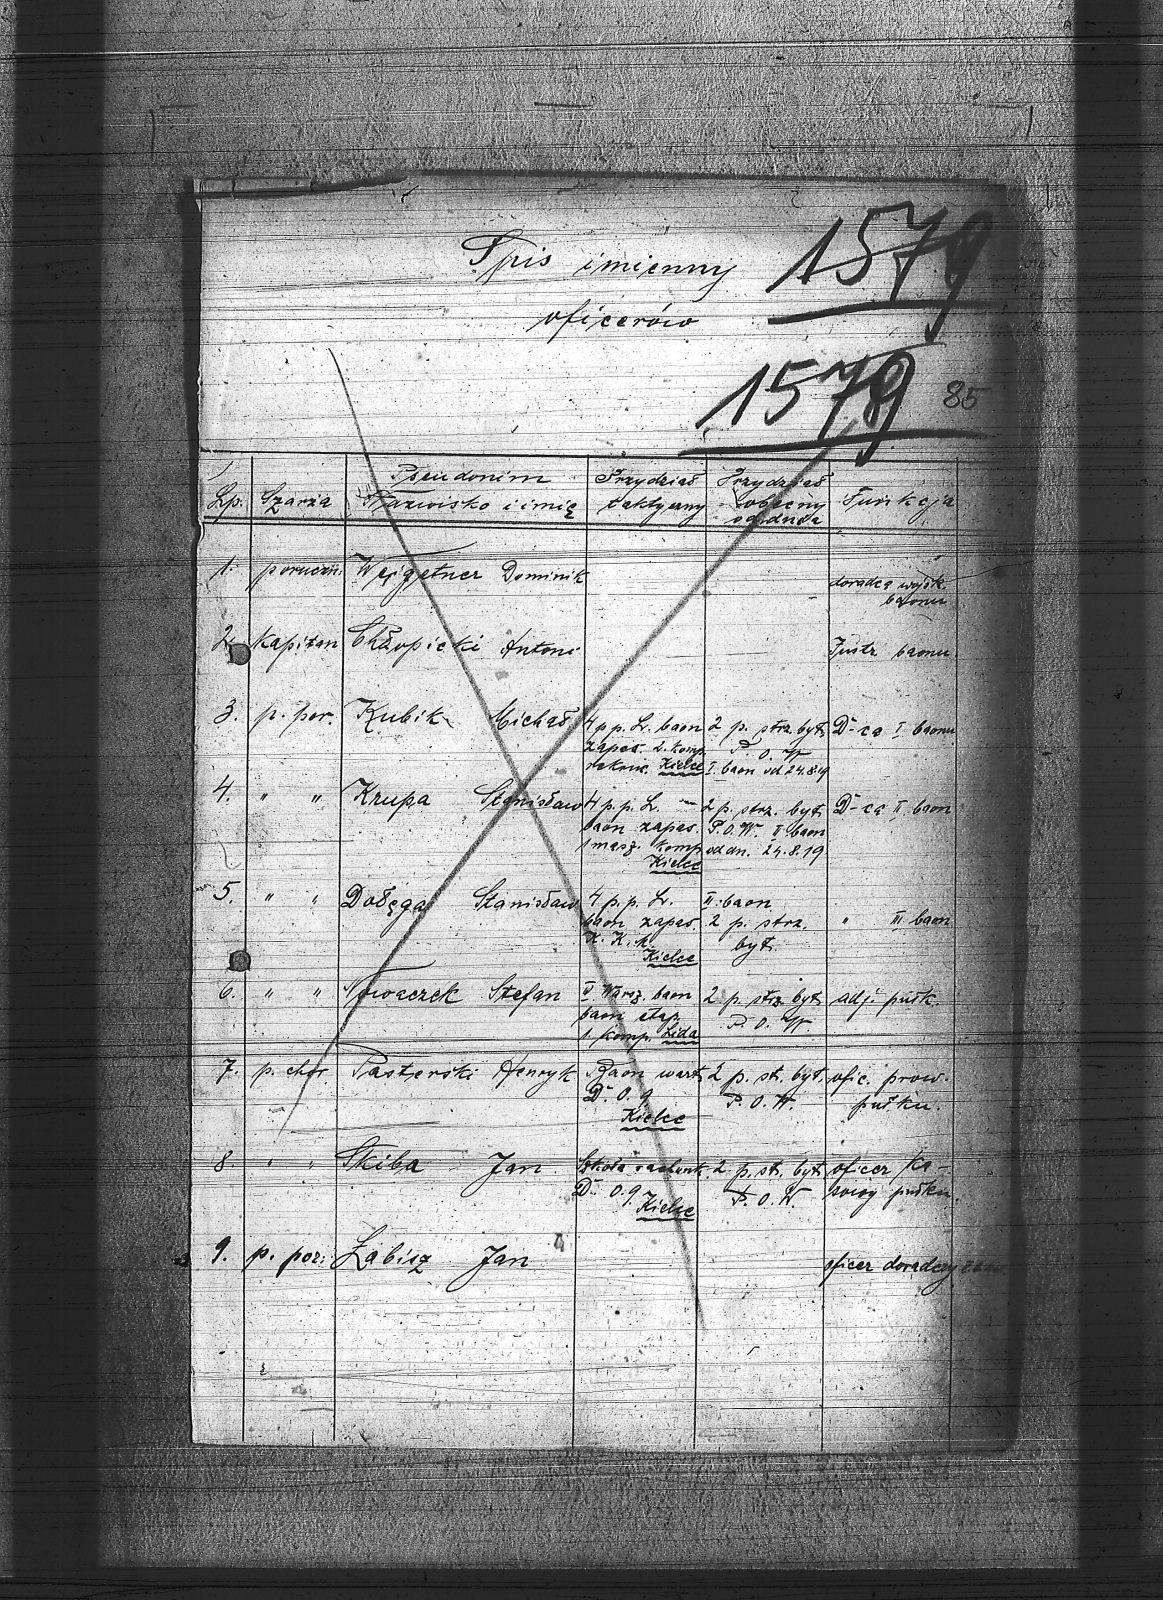 Spis imienny
oficerów
1579
1579
85
Lp. Szarża Pseudonim Nazwisko i imię Przydział taktyczny Przydział obecny od dnia Funkcja
1. poruczn. Wejgetner Dominik doradca wojsk. baonu
2. kapitan Chłopicki Antoni Instr baonu.
3. p. por. Kubik Michał 4 p.p. L. baon 2 p. strz. byt. D-ca I baonu
zapas. 2. komp. P. O. W.
Kielce I. baon od 24.8.19
4. " " Krupa Stanisław 4 p.p. L. 2 p. strz. byt. D-ca II baon
baon zapas. P.O.W. II baon
1 masz. komp. od dn. 24.8.19
Kielce
5. " " Dołęga Stanisław 4 p.p. L. II baon
baon zapas. 2 p. strz. " III baon
K. K. byt.
Kielce
6. " " Nowaczek Stefan II Warsz. baon 2 p. strz. byt. adj. pułk.
baon etap. P. O. W.
1. komp. Lida
7. p. chor. Pasterski Henryk Baon wart. 2 p. st. byt. ofic. prow.
D. O. g P. O. W. pułku.
Kielce
8. " " Skiba Jan Szkoła rachunk. 2 p. st. byt. oficer ka-
D. O. g P. O. W. sowy pułku.
Kielce
9. p. por. Łabisz Jan oficer doradczy